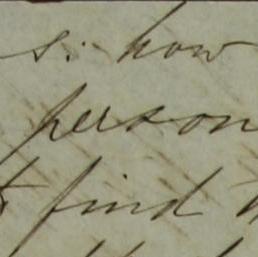 s: how
person
find